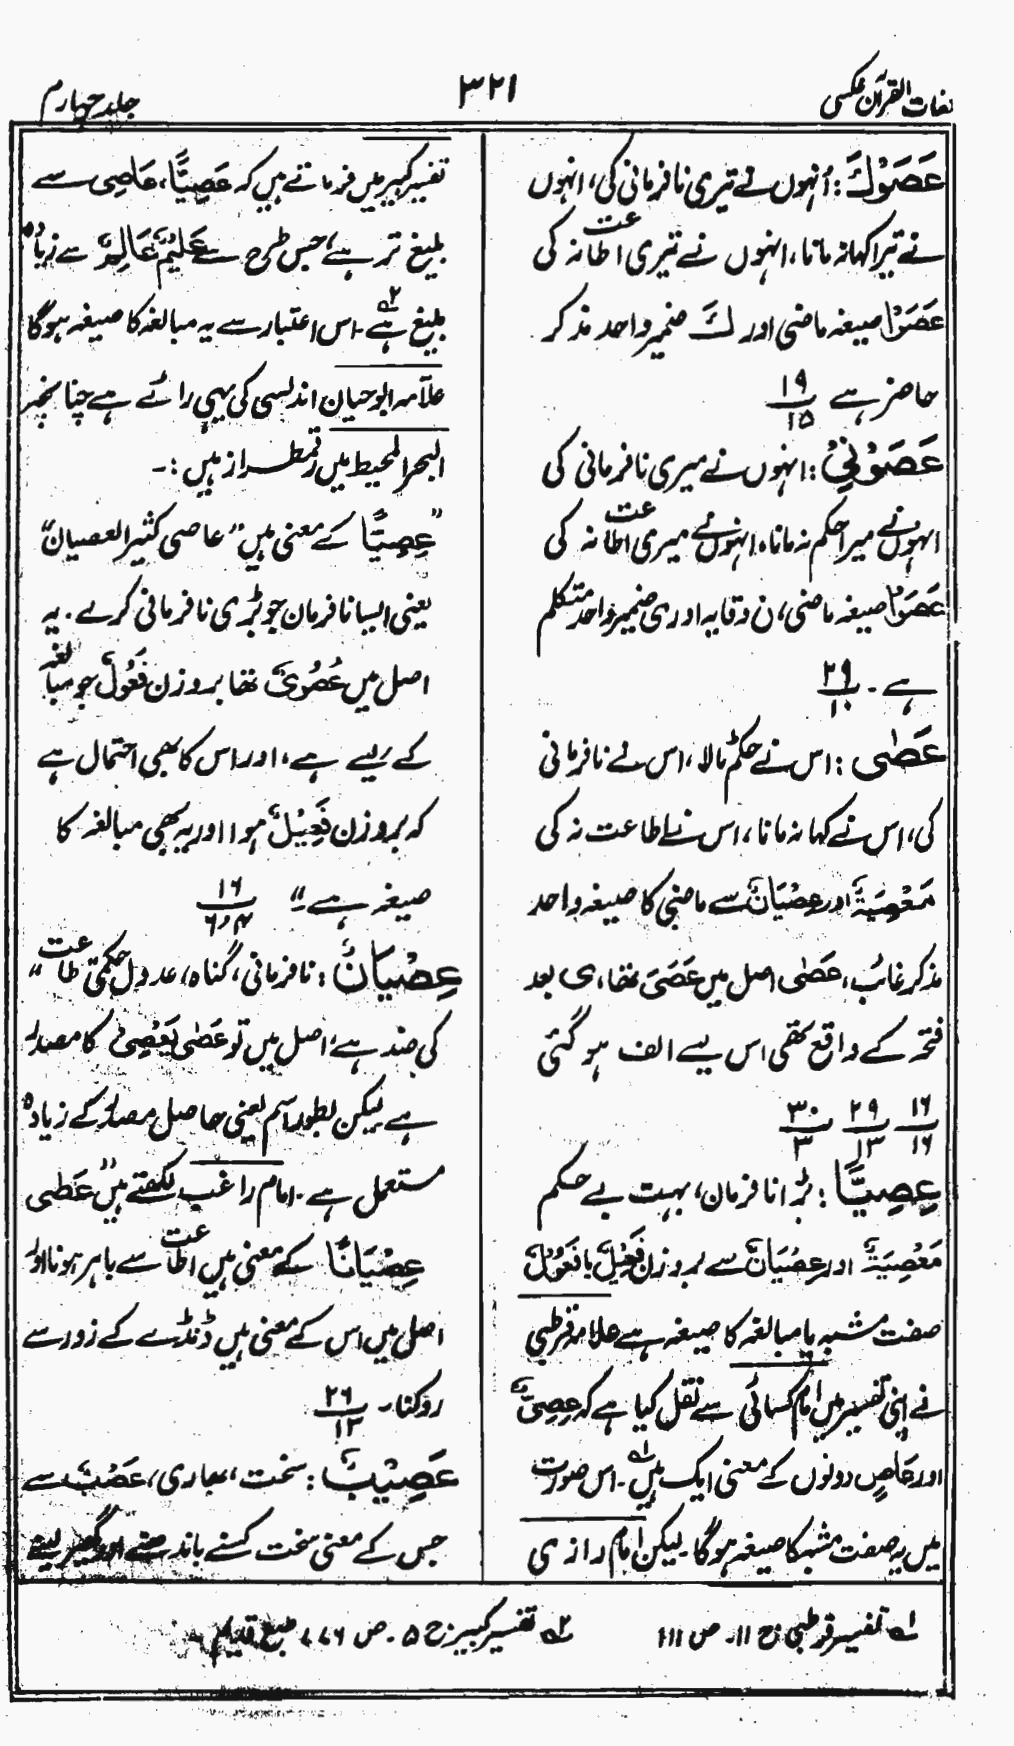 لغات القرآن عکسی
۳۲۱
جلد چہارم
عَصَوْكَ : اُنہوں نے تیری نافرمانی کی، انہوں
نے تیرا کہا نہ مانا، انہوں نے تیری اطاعت نہ کی
عَصَوْا صیغہ ماضی اور كَ ضمیر واحد مذکر
حاضر ہے ۱۹/۱۵
عَصَوْنِيْ : انہوں نے میری نافرمانی کی
انہوں نے میرا حکم نہ مانا، انہوں نے میری اطاعت نہ کی
عَصَوْا صیغہ ماضی، ن وقایہ اور ی ضمیر واحد متکلم
ہے ۔ ۲۹/۱۰
عَصٰی : اس نے حکم ٹالا، اس نے نافرمانی
کی، اس نے کہا نہ مانا، اس نے اطاعت نہ کی
مَعْصِيَةٌ اور عِصْيَانٌ سے ماضی کا صیغہ واحد
مذکر غائب، عَصٰی اصل میں عَصَیَ تھا، ی بعد
فتحہ کے واقع تھی اس لیے الف ہو گئی
۱۶/۱۶ ۲۹/۱۳ ۳۰/۳
عِصِيًّا : بڑا نافرمان، بہت بے حکم
مَعْصِيَةٌ اور عِصْيَانٌ سے بروزن فَعِيْلٌ یا فَعُوْلٌ
صفت مشبہ یا مبالغہ کا صیغہ ہے علامہ قرطبی
نے اپنی تفسیر میں امام کسائی سے نقل کیا ہے کہ عِصِيٌّ
اور عَاصٍ دونوں کے معنی ایک ہیں ۱ہ ۔ اس صورت
میں یہ صفت مشبہ کا صیغہ ہو گا۔ لیکن امام رازی
تفسیر کبیر میں فرماتے ہیں کہ عَصِيًّا، عَاصِی سے
بلیغ تر ہے، جس طرح سے عَلِيْمٌ عَالِمٌ سے زیادہ
بلیغ ہے ۲ہ ۔ اس اعتبار سے یہ مبالغہ کا صیغہ ہوگا
علّامہ ابوحیان اندلسی کی یہی رائے ہے چنانچہ
البحر المحیط میں رقمطراز ہیں :۔
”عِصِيًّا کے معنی ہیں ”عاصی کثیر العصیان“
یعنی ایسا نافرمان جو بڑی نافرمانی کرے ۔ یہ
اصل میں عُصُوْیٌ تھا بروزن فَعُوْلٌ جو مبالغہ
کے لیے ہے، اور اس کا بھی احتمال ہے
کہ بروزن فَعِيْلٌ ہو، اور یہ بھی مبالغہ کا
صیغہ ہے“ ۱۶/۴و۶
عِصْيَانٌ : نافرمانی، گناہ، عدول حکمی، ”طاعت“
کی ضد ہے، اصل میں تو عَصٰی یَعْصِیْ کا مصدر
ہے لیکن بطور اسم یعنی حاصل مصدر کے زیادہ
مستعمل ہے ۔ امام راغب لکھتے ہیں ”عَصٰی
عِصْيَانًا کے معنی ہیں اطاعت سے باہر ہونا اور
اصل میں اس کے معنی ہیں ڈنڈے کے زور سے
روکنا ۔ ۲۶/۱۳
عَصِيْبٌ : سخت، بھاری، عَصْبٌ سے
جس کے معنی سخت کسنے باندھنے اور گھیر لینے
۱ہ تفسیر قرطبی ج ۱۱۔ ص ۱۱۱
۲ہ تفسیر کبیر ج ۵ ۔ ص ۷۷۶، طبع قدیم